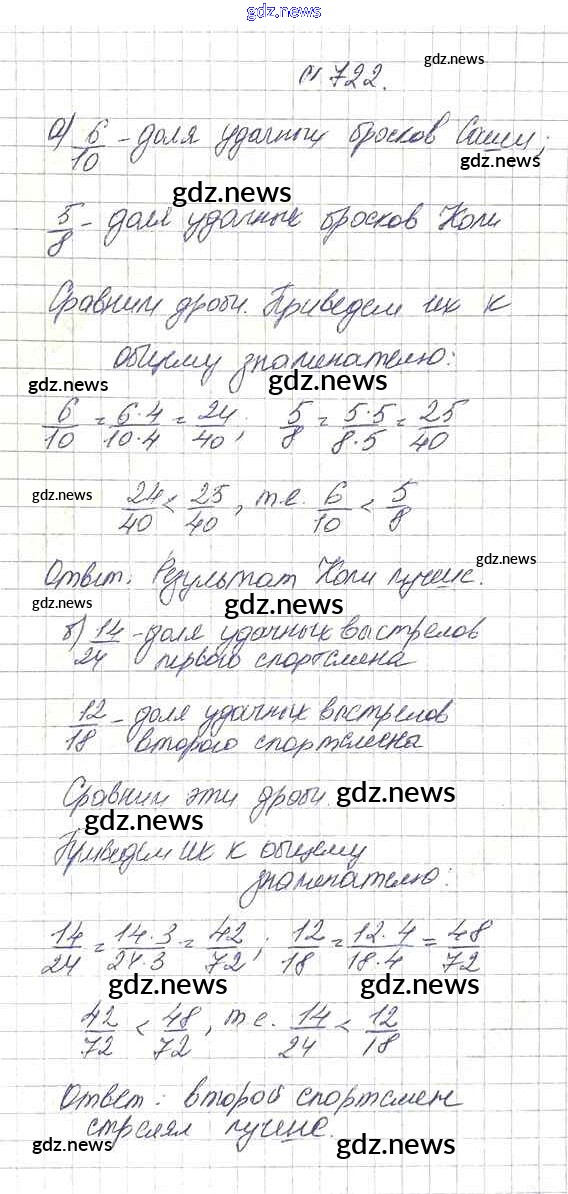 gdz.news
№722.
gdz.news
а) 6/10 - доля удачных бросков Саши;
gdz.news
gdz.news
5/8 - доля удачных бросков Коли
Сравним дроби. Приведем их к
общему знаменателю:
gdz.news
gdz.news
6/10 = 6·4/10·4 = 24/40; 5/8 = 5·5/8·5 = 25/40
gdz.news
24/40 < 25/40, т.е. 6/10 < 5/8
gdz.news
Ответ: Результат Коли лучше.
gdz.news
gdz.news
б) 14/24 - доля удачных выстрелов
первого спортсмена
12/18 - доля удачных выстрелов
второго спортсмена
Сравним эти дроби.
gdz.news
gdz.news
Приведем их к общему
знаменателю:
14/24 = 14·3/24·3 = 42/72; 12/18 = 12·4/18·4 = 48/72
gdz.news
gdz.news
42/72 < 48/72, т.е. 14/24 < 12/18
Ответ: второй спортсмен
стрелял лучше.
gdz.news
gdz.news